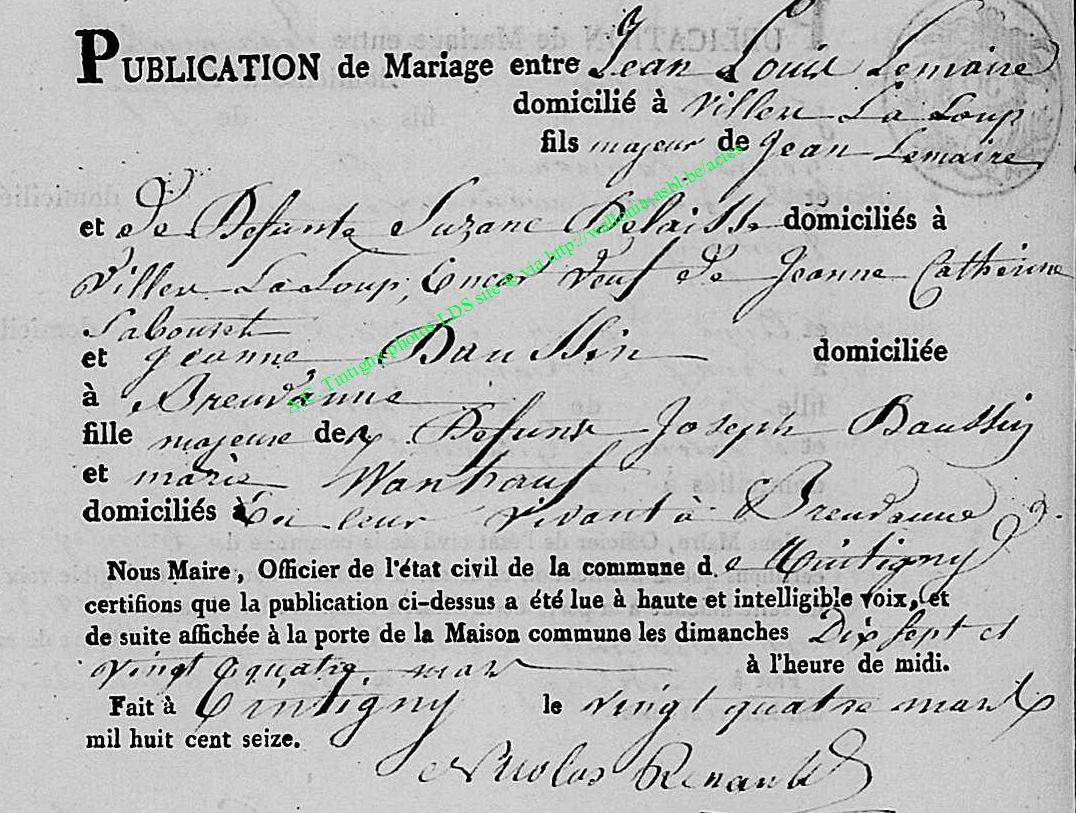 PUBLICATION de Mariage entre Jean Louis Lemaire
domicilié à Viller La Loup
fils majeur de Jean Lemaire
et de Defunte Suzane Delaisse domiciliés à
Viller La Loup, Encor veuf de Jeanne Catherine
Sabouret
et Jeanne Baussin domiciliée
à Breuvanne
fille majeure de Defunt Joseph Baussin
et marie
domiciliés à En leur vivant à Breuvanne
Nous Maire, Officier de l'état civil de la commune de Tintigny
certifions que la publication ci-dessus a été lue à haute et intelligible voix, et
de suite affichée à la porte de la Maison commune les dimanches Dix sept et
vingt quatre mar à l'heure de midi.
Fait à Tintigny le vingt quatre mars
mil huit cent seize.
Nicolas Renauld
AC Tintigny photos LDS site © via http://wallonia-asbl.be/actes